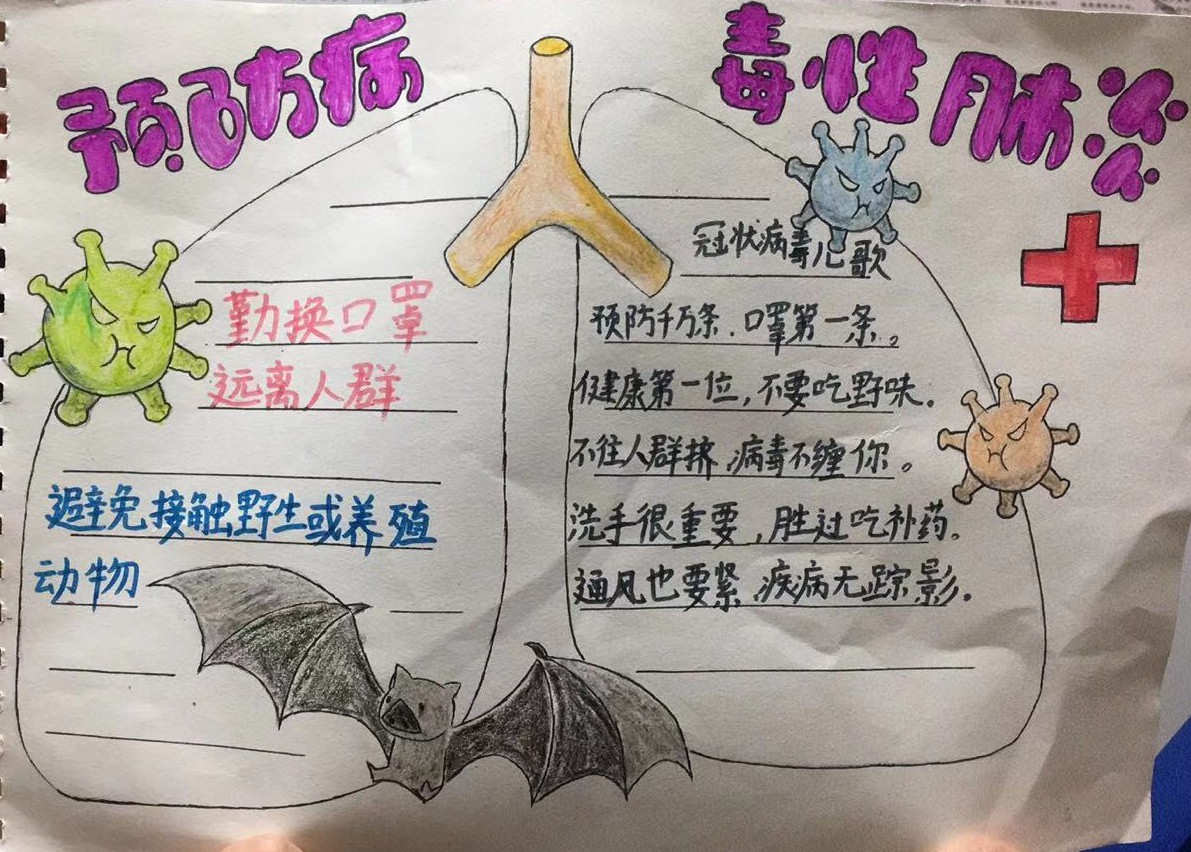 预防病毒性肺炎
勤换口罩
远离人群
避免接触野生或养殖
动物
冠状病毒儿歌
预防千万条,口罩第一条。
健康第一位,不要吃野味。
不往人群挤,病毒不缠你。
洗手很重要,胜过吃补药。
通风也要紧,疾病无踪影。